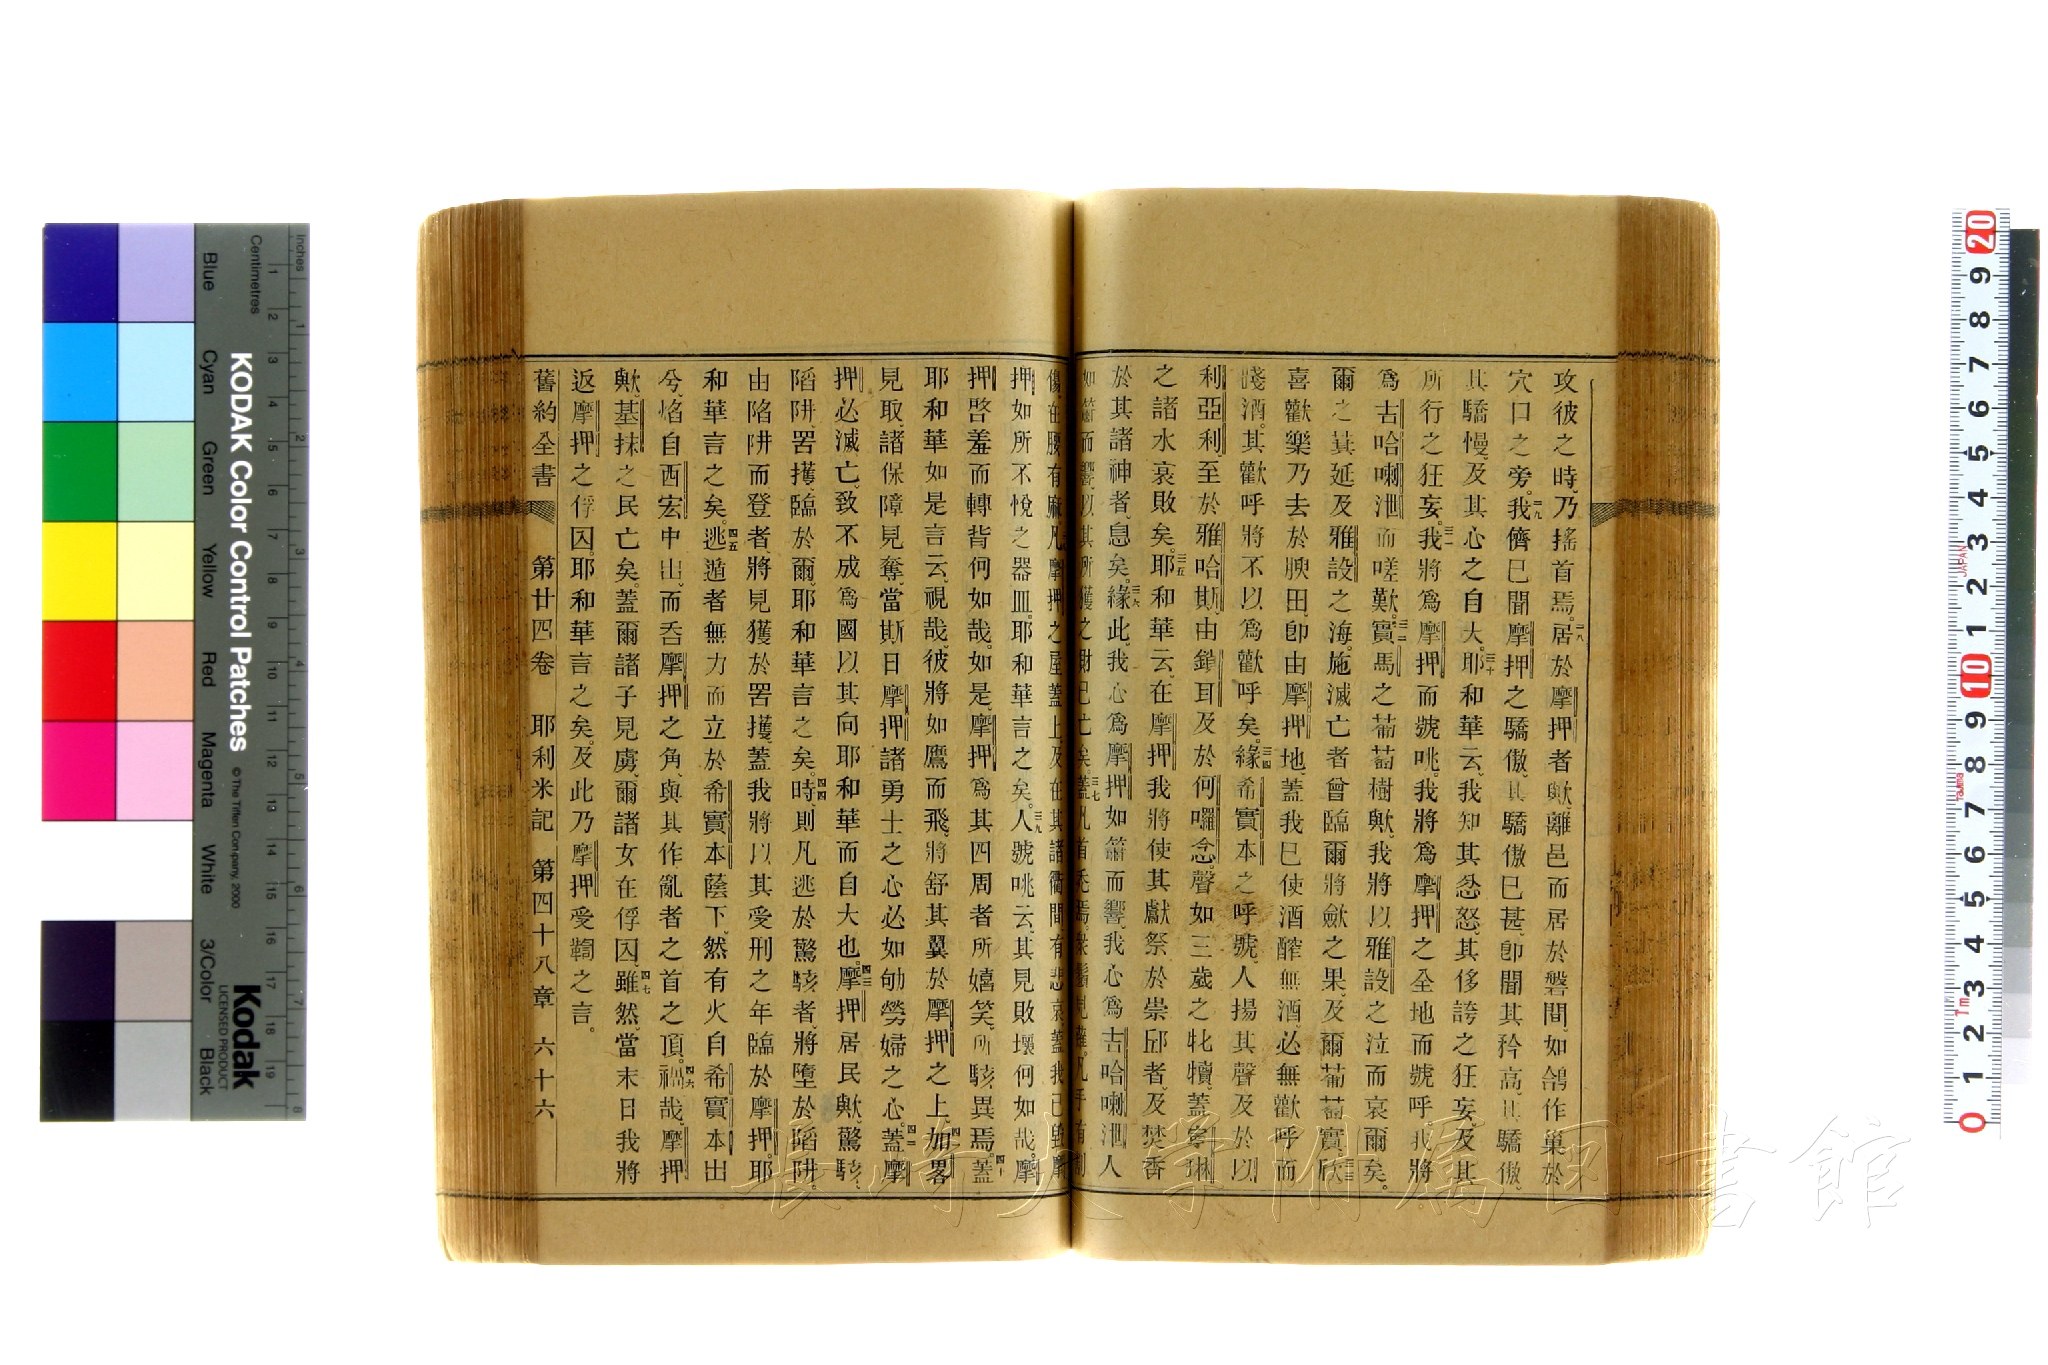 攻彼之時、乃搖首焉。二八居於摩押者歟、離邑而居於磐間、如鴿作巢於
穴口之旁。二九我儕已聞摩押之驕傲、其驕傲已甚、卽聞其矜高、其驕傲、
其驕慢、及其心之自大。三十耶和華云、我知其忿怒、其侈誇之狂妄、及其
所行之狂妄。三一我將爲摩押而號咷、我將爲摩押之全地而號呼、我將
爲吉哈喇泄而嗟歎。三二實馬之葡萄樹歟、我將以雅設之泣而哀爾矣。
爾之蓁延及雅設之海。施滅亡者曾臨爾將歛之果、及爾葡萄實。三三欣
喜歡樂乃去於腴田、卽由摩押地、蓋我已使酒醡無酒、必無歡呼而
踐酒。其歡呼將不以爲歡呼矣。三四緣希實本之呼號、人揚其聲及於以
利亞利、至於雅哈斯、由鎖耳及於何囉念。聲如三歲之牝犢、蓋寧琳
之諸水哀敗矣。三五耶和華云、在摩押我將使其獻祭於崇邱者、及焚香
於其諸神者息矣。三六緣此、我心爲摩押如簫而響、我心爲吉哈喇泄人
如簫而響、以其所獲之財已亡矣。三七蓋凡首禿焉、凡鬚見薙、凡手有割
傷、在腰有麻。凡摩押之屋蓋上、及在其諸衢間有悲哀、蓋我已毀摩
押、如所不悅之器皿。耶和華言之矣。三九人號咷云、其見敗壞何如哉。摩
押啓羞而轉背何如哉。如是、摩押爲其四周者所嬉笑、所駭異焉。四十蓋
耶和華如是言云、視哉、彼將如鷹而飛、將舒其翼於摩押之上。四一加畧
見取、諸保障見奪、當斯日摩押諸勇士之心必如劬勞婦之心。四二蓋摩
押必滅亡、致不成爲國、以其向耶和華而自大也。四三摩押居民歟、驚駭、
陷阱、罟擭、臨於爾、耶和華言之矣。四四時則凡逃於驚駭者、將墮於陷阱。
由陷阱而登者、將見獲於罟擭、蓋我將以其受刑之年臨於摩押。耶
和華言之矣。四五逃遁者無力而立於希實本蔭下、然有火自希實本出
兮、焰自西宏中出而吞摩押之角、與其作亂者之首之頂。四六禍哉、摩押
歟。基抹之民亡矣。蓋爾諸子見虜、爾諸女在俘囚。四七雖然、當末日我將
返摩押之俘囚。耶和華言之矣。及此乃摩押受鞫之言。
舊約全書 第廿四卷 耶利米記 第四十八章 六十六
Inches
Centimetres
KODAK Color Control Patches
©The Tiffen Company, 2000
Kodak
LICENSED PRODUCT
Blue
Cyan
Green
Yellow
Red
Magenta
White
3/Color
Black
長崎大学附属図書館